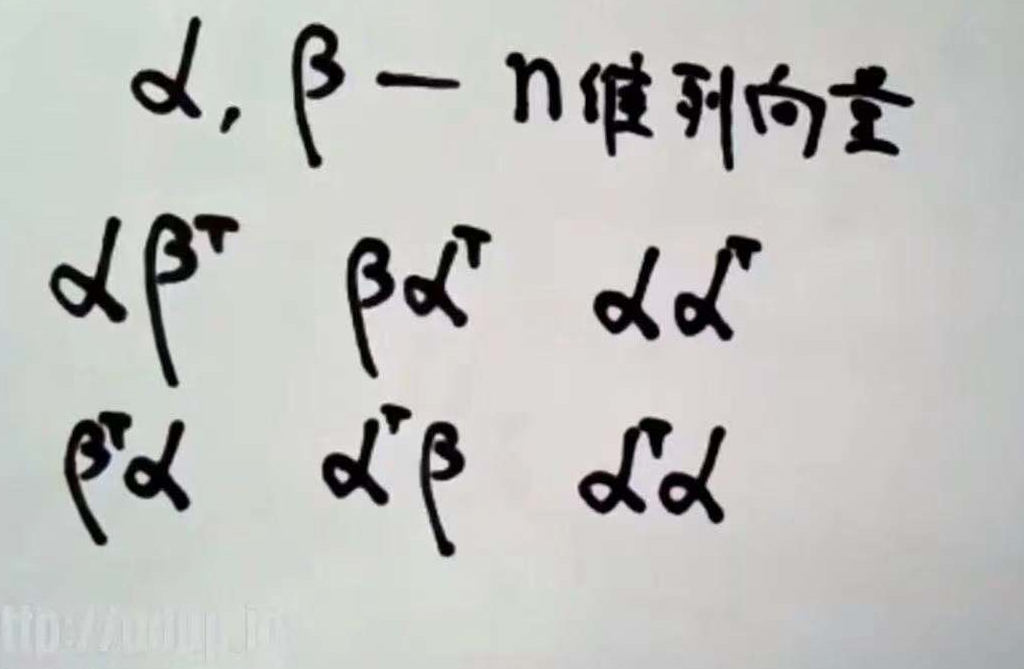 α, β — n维列向量
αβᵀ βαᵀ ααᵀ
βᵀα αᵀβ αᵀα